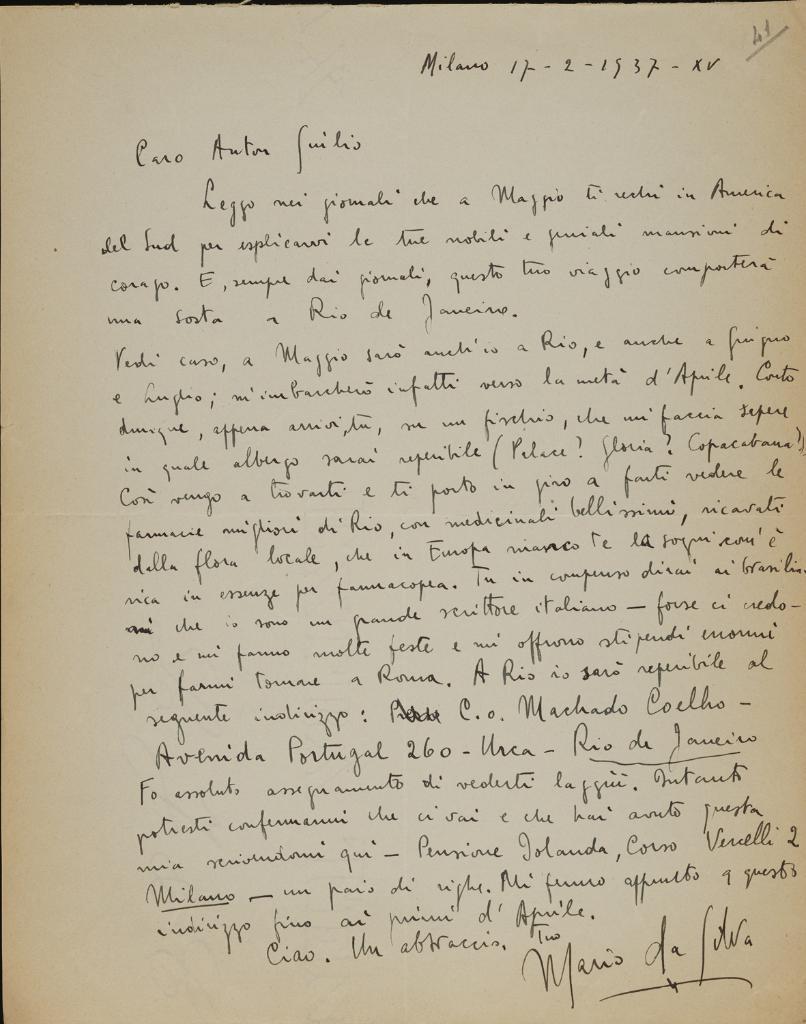 41
Milano 17-2-1937-XV
Caro Anton Giulio
Leggo nei giornali che a Maggio ti rechi in America
del Sud per esplicarvi le tue nobili e geniali mansioni di
corago. E, sempre dai giornali, questo tuo viaggio comporterà
una sosta a Rio de Janeiro.
Vedi caso, a Maggio sarò anch'io a Rio, e anche a Giugno
e Luglio; m'imbarcherò infatti verso la metà d'Aprile. Conto
dunque, appena arrivi, tu, su un fischio, che mi faccia sapere
in quale albergo sarai reperibile (Palace? Gloria? Copacabana?).
Così vengo a trovarti e ti porto in giro a farti vedere le
farmacie migliori di Rio, con medicinali bellissimi, ricavati
dalla flora locale, che in Europa manco te la sogni com'è
rica in essenze per farmacopea. Tu in compenso dirai ai brasilia-
ni che io sono un grande scrittore italiano — forse ci credo-
no e mi fanno molte feste e mi offrono stipendi enormi
per farmi tornare a Roma. A Rio io sarò reperibile al
seguente indirizzo: C.o. Machado Coelho -
Avenida Portugal 260 - Urca - Rio de Janeiro
Fo assoluto assegnamento di vederti laggiù. Intanto
potresti confermarmi che ci vai e che hai avuto questa
mia scrivendomi qui — Pensione Jolanda, Corso Vercelli 2
Milano — un paio di righe. Mi fermo appunto a questo
indirizzo fino ai primi d'Aprile.
Ciao. Un abbraccio. Tuo
Mario da Silva